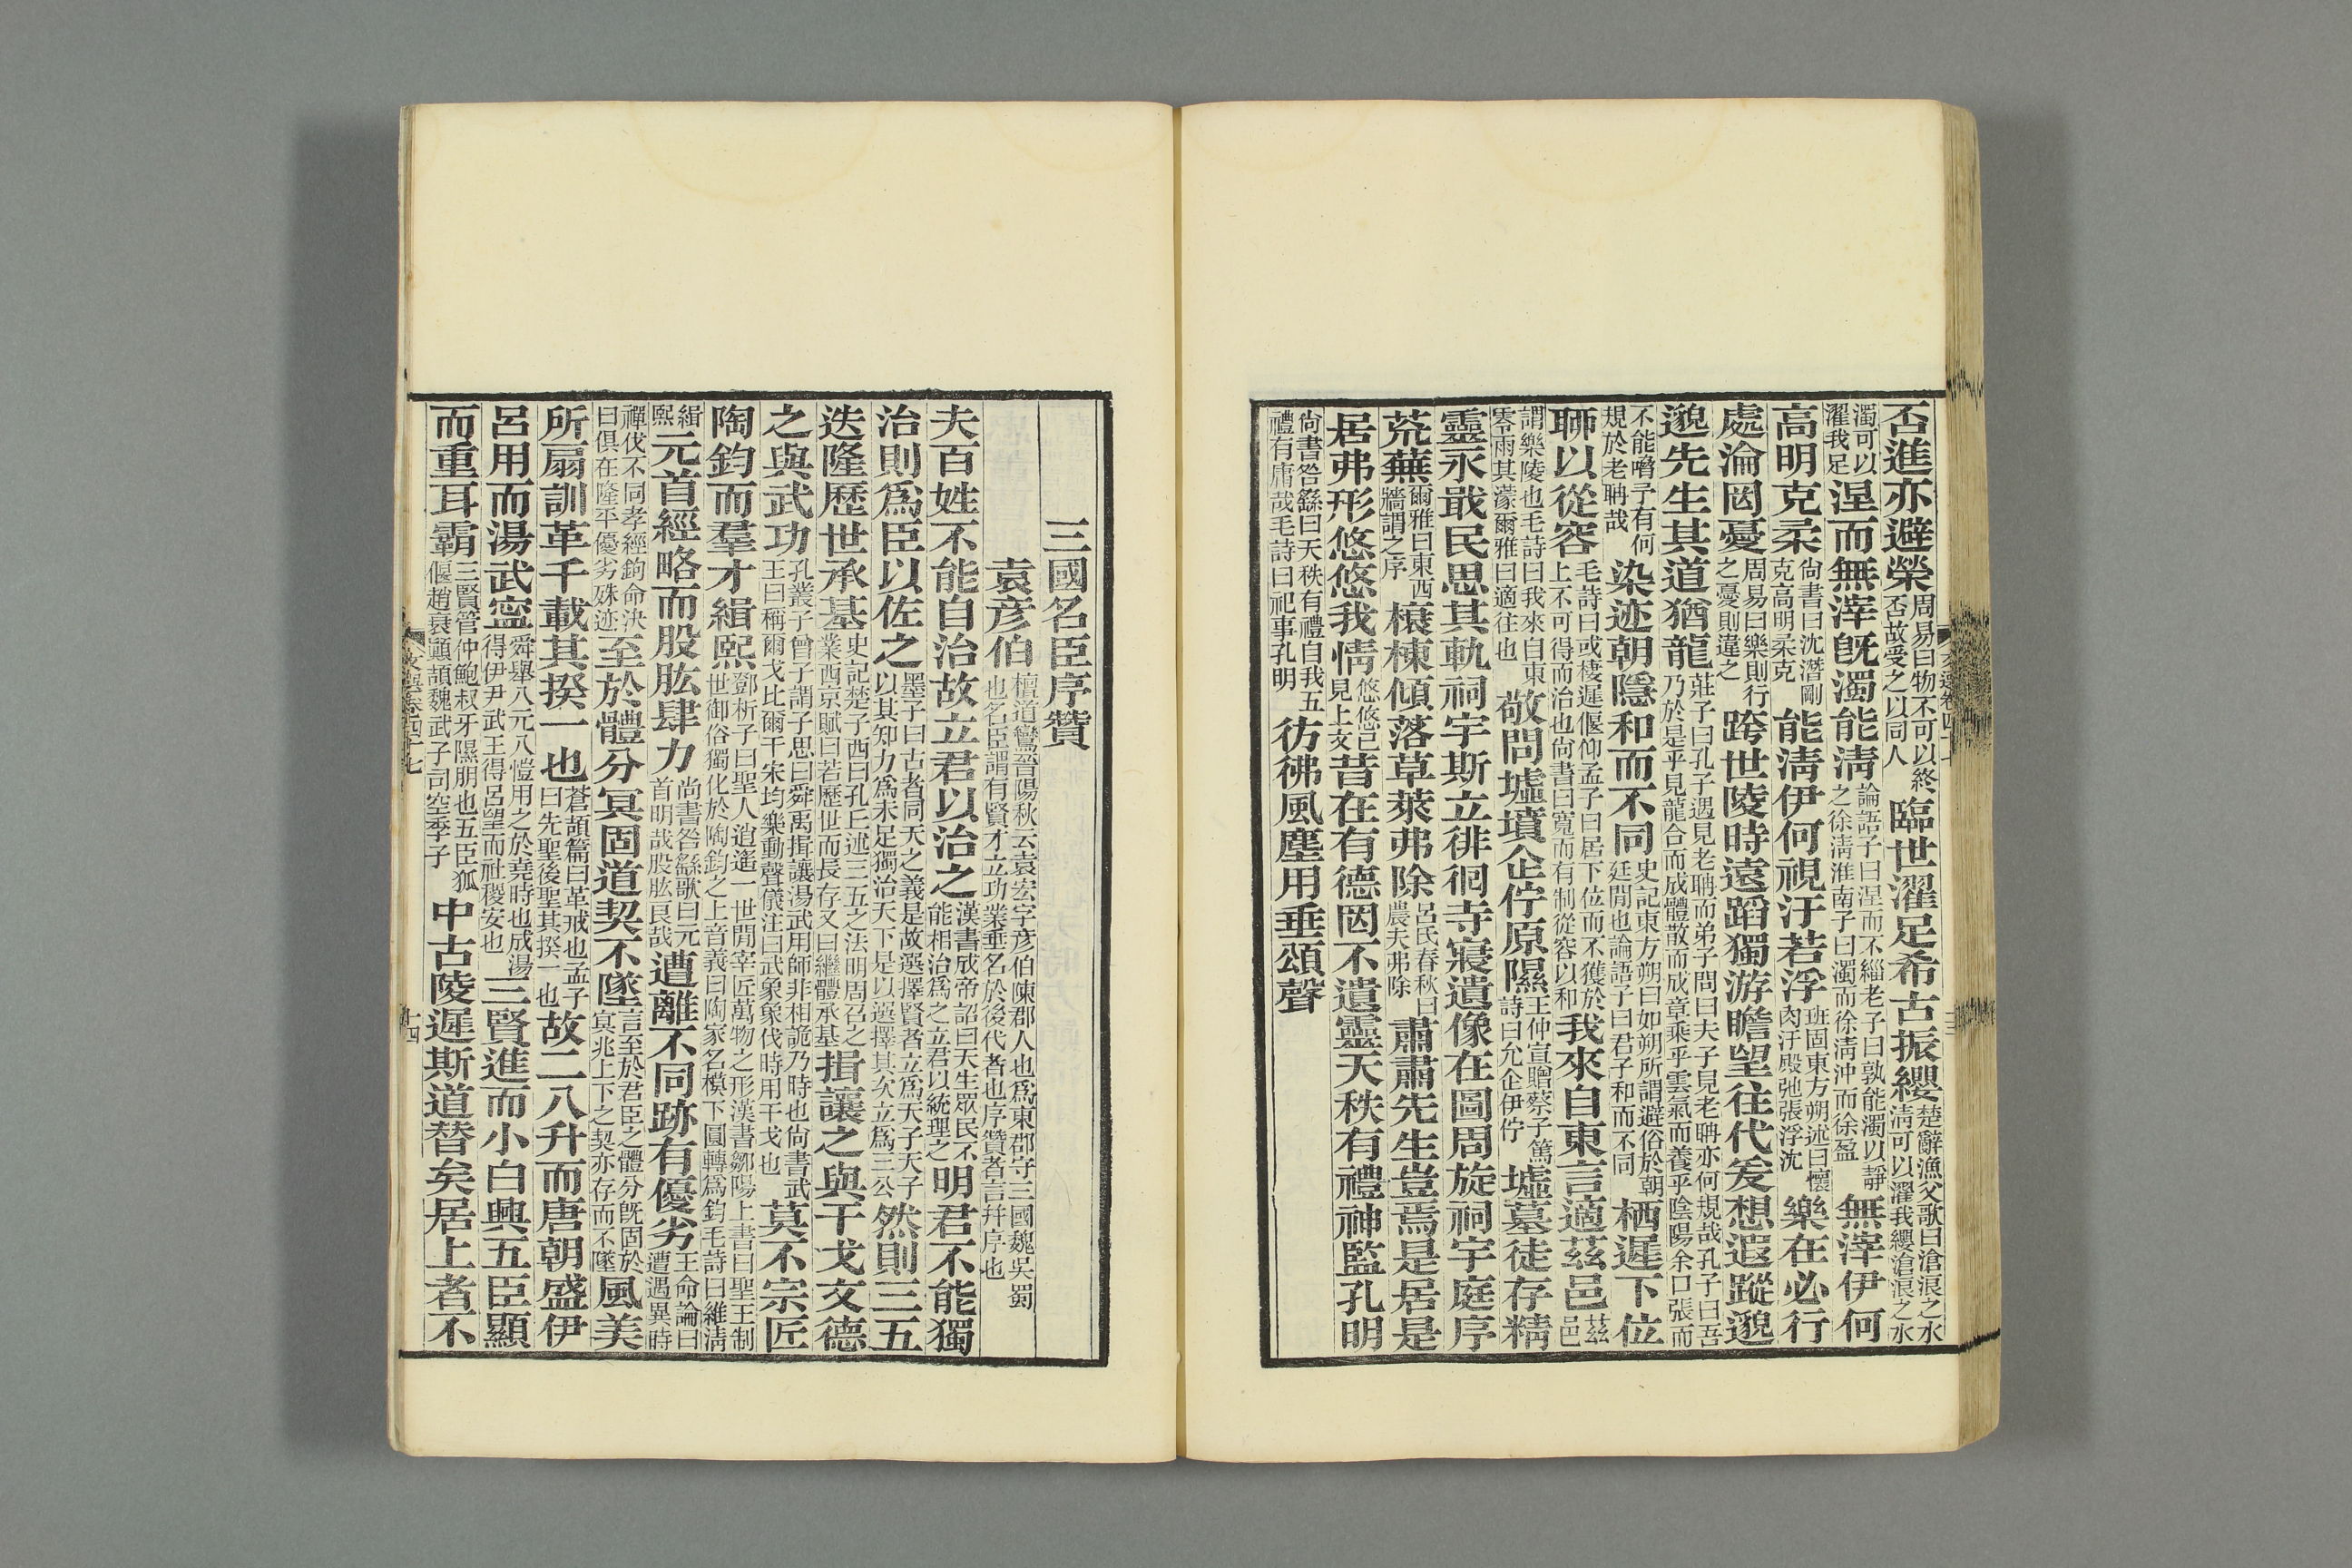 否進亦避榮周易曰物不可以終否故受之以同人臨世濯足希古振纓楚辭漁父歌曰滄浪之水淸可以濯我纓滄浪之水
濁可以濯我足涅而無滓旣濁能淸論語子曰涅而不緇老子曰孰能濁以靜之徐淸淮南子曰濁而徐淸沖而徐盈無滓伊何
高明克柔尙書曰沈潛剛克高明柔克能淸伊何視汙若浮班固東方朔述曰懷肉汙殿弛張浮沈樂在必行
處淪罔憂周易曰樂則行之憂則違之跨世陵時遠蹈獨游瞻望往代爰想遐蹤邈
邈先生其道猶龍莊子曰孔子遇見老聃而弟子問曰夫子見老聃亦何規哉孔子曰吾乃於是乎見龍合而成體散而成章乘乎雲氣而養乎陰陽余口張而
不能嚼予有何規於老聃哉染迹朝隱和而不同史記東方朔曰如朔所謂避俗於朝廷閒也論語子曰君子和而不同栖遲下位
聊以從容毛詩曰或棲遲偃仰孟子曰居下位而不獲於上不可得而治也尙書曰寬而有制從容以和我來自東言適茲邑茲邑
謂樂陵也毛詩曰我來自東零雨其濛爾雅曰適往也敬問墟墳企佇原隰王仲宣贈蔡子篤詩曰允企伊佇墟墓徒存精
靈永戢民思其軌祠宇斯立徘徊寺寢遺像在圖周旋祠宇庭序
荒蕪爾雅曰東西牆謂之序榱棟傾落草萊弗除呂氏春秋曰農夫弗除肅肅先生豈焉是居是
居弗形悠悠我情悠悠已見上文昔在有德罔不遺靈天秩有禮神監孔明
尙書咎繇曰天秩有禮自我五禮有庸哉毛詩曰祀事孔明彷彿風塵用垂頌聲
三國名臣序贊
袁彥伯檀道鸞晉陽秋云袁宏字彥伯陳郡人也爲東郡守三國魏吳蜀也名臣謂有賢才立功業垂名於後代者也序贊者言幷序也
夫百姓不能自治故立君以治之漢書成帝詔曰天生眾民不能相治爲之立君以統理之明君不能獨
治則爲臣以佐之墨子曰古者同天之義是故選擇賢者立爲天子天子以其知力爲未足獨治天下是以選擇其次立爲三公然則三五
迭隆歷世承基史記楚子西曰孔丘述三五之法明周召之業西京賦曰若歷世而長存又曰繼體承基揖讓之與干戈文德
之與武功孔叢子曾子謂子思曰舜禹揖讓湯武用師非相詭乃時也尙書武王曰稱爾戈比爾干宋均樂動聲儀注曰武象象伐時用干戈也莫不宗匠
陶鈞而羣才緝熙鄧析子曰聖人逍遙一世閒宰匠萬物之形漢書鄒陽上書曰聖王制世御俗獨化於陶鈞之上音義曰陶家名模下圓轉爲鈞毛詩曰維淸
緝熙元首經略而股肱肆力尙書咎繇歌曰元首明哉股肱良哉遭離不同跡有優劣王命論曰遭遇異時
禪伐不同孝經鉤命決曰俱在隆平優劣殊迹至於體分冥固道契不墜言至於君臣之體分旣固於冥兆上下之契亦存而不墜風美
所扇訓革千載其揆一也蒼頡篇曰革戒也孟子曰先聖後聖其揆一也故二八升而唐朝盛伊
呂用而湯武寧舜舉八元八愷用之於堯時也成湯得伊尹武王得呂望而社稷安也三賢進而小白興五臣顯
而重耳霸三賢管仲鮑叔牙隰朋也五臣狐偃趙衰顚頡魏武子司空季子中古陵遲斯道替矣居上者不
文選卷四十七
十四